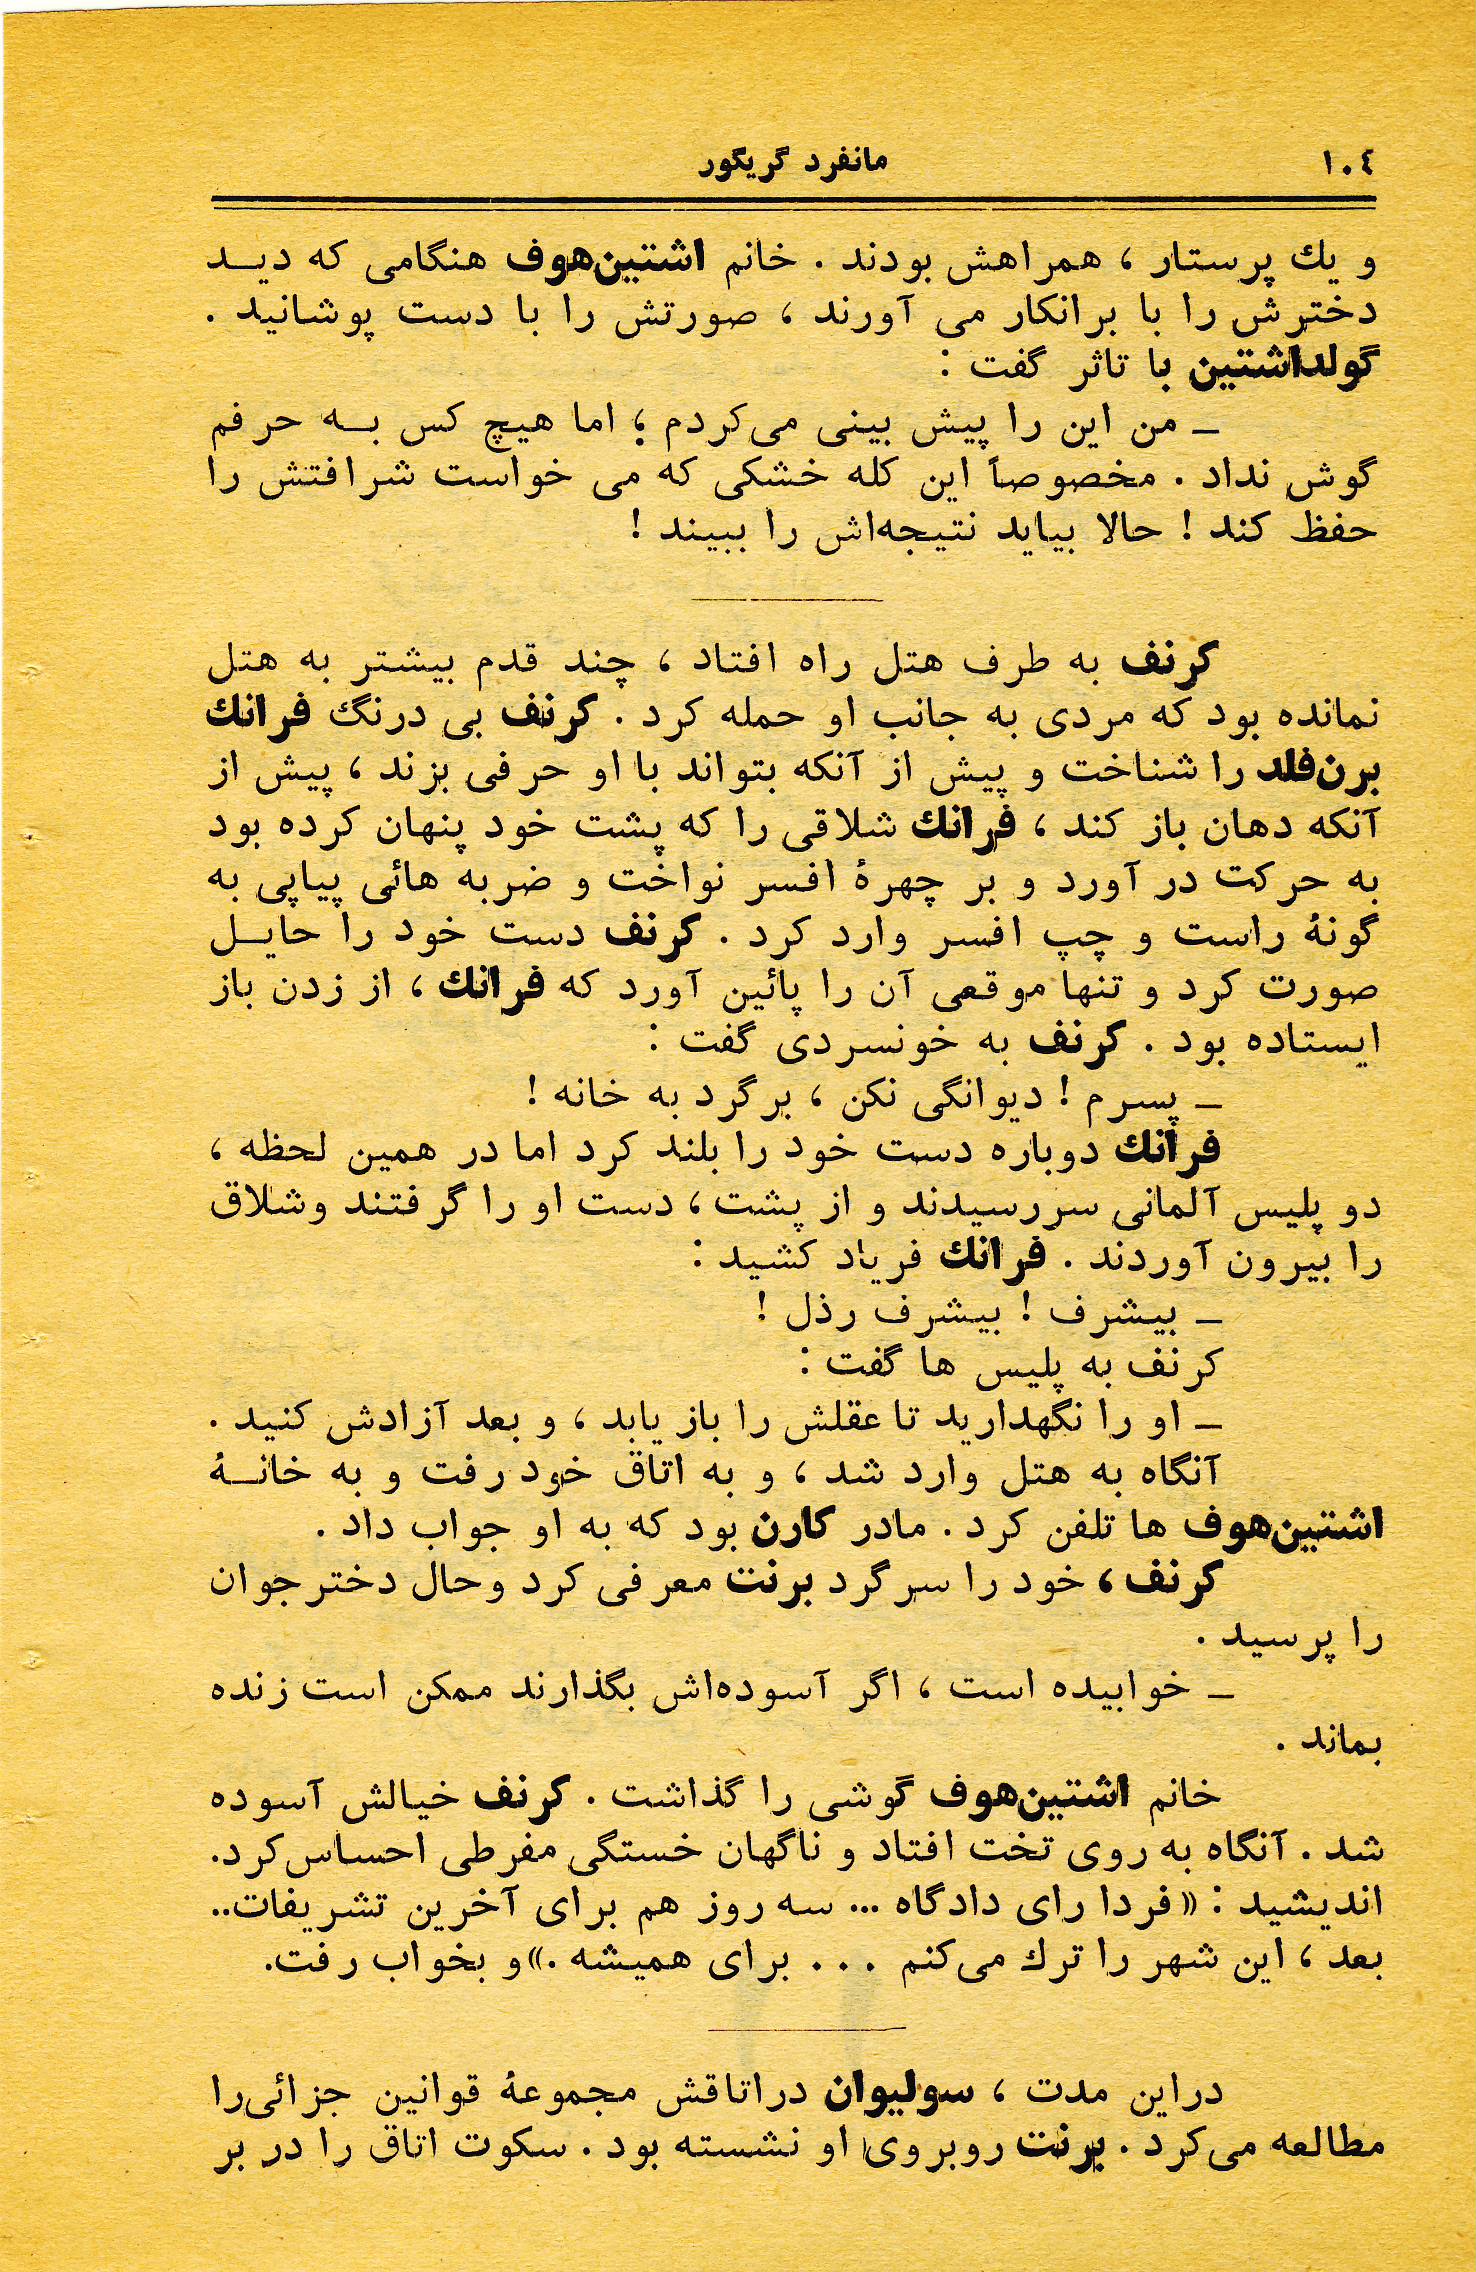 ۱۰٤
مانفرد گریگور
و یك پرستار ، همراهش بودند . خانم اشتین‌هوف هنگامی که دیـد
دخترش را با برانکار می آورند ، صورتش را با دست پوشانید .
گولداشتین با تاثر گفت :
ـ من این را پیش بینی می‌کردم ؛ اما هیچ کس بـه حرفم
گوش نداد . مخصوصاً این کله خشکی که می خواست شرافتش را
حفظ کند ! حالا بیاید نتیجه‌اش را ببیند !
کرنف به طرف هتل راه افتاد ، چند قدم بیشتر به هتل
نمانده بود که مردی به جانب او حمله کرد . کرنف بی درنگ فرانك
برن‌فلد را شناخت و پیش از آنکه بتواند با او حرفی بزند ، پیش از
آنکه دهان باز کند ، فرانك شلاقی را که پشت خود پنهان کرده بود
به حرکت در آورد و بر چهرهٔ افسر نواخت و ضربه هائی پیاپی به
گونهٔ راست و چپ افسر وارد کرد . کرنف دست خود را حایـل
صورت کرد و تنها موقعی آن را پائین آورد که فرانك ، از زدن باز
ایستاده بود . کرنف به خونسردی گفت :
ـ پسرم ! دیوانگی نکن ، برگرد به خانه !
فرانك دوباره دست خود را بلند کرد اما در همین لحظه ،
دو پلیس آلمانی سررسیدند و از پشت ، دست او را گرفتند وشلاق
را بیرون آوردند . فرانك فریاد کشید :
ـ بیشرف ! بیشرف رذل !
کرنف به پلیس ها گفت :
ـ او را نگهدارید تا عقلش را باز یابد ، و بعد آزادش کنید .
آنگاه به هتل وارد شد ، و به اتاق خود رفت و به خانـهٔ
اشتین‌هوف ها تلفن کرد . مادر کارن بود که به او جواب داد .
کرنف ، خود را سرگرد برنت معرفی کرد وحال دختر جوان
را پرسید .
ـ خوابیده است ، اگر آسوده‌اش بگذارند ممکن است زنده
بماند .
خانم اشتین‌هوف گوشی را گذاشت . کرنف خیالش آسوده
شد . آنگاه به روی تخت افتاد و ناگهان خستگی مفرطی احساس‌کرد.
اندیشید : «فردا رای دادگاه ... سه روز هم برای آخرین تشریفات..
بعد ، این شهر را ترك می‌کنم . . . برای همیشه .» و بخواب رفت.
دراین مدت ، سولیوان دراتاقش مجموعهٔ قوانین جزائی‌را
مطالعه می‌کرد . برنت روبروی او نشسته بود . سکوت اتاق را در بر